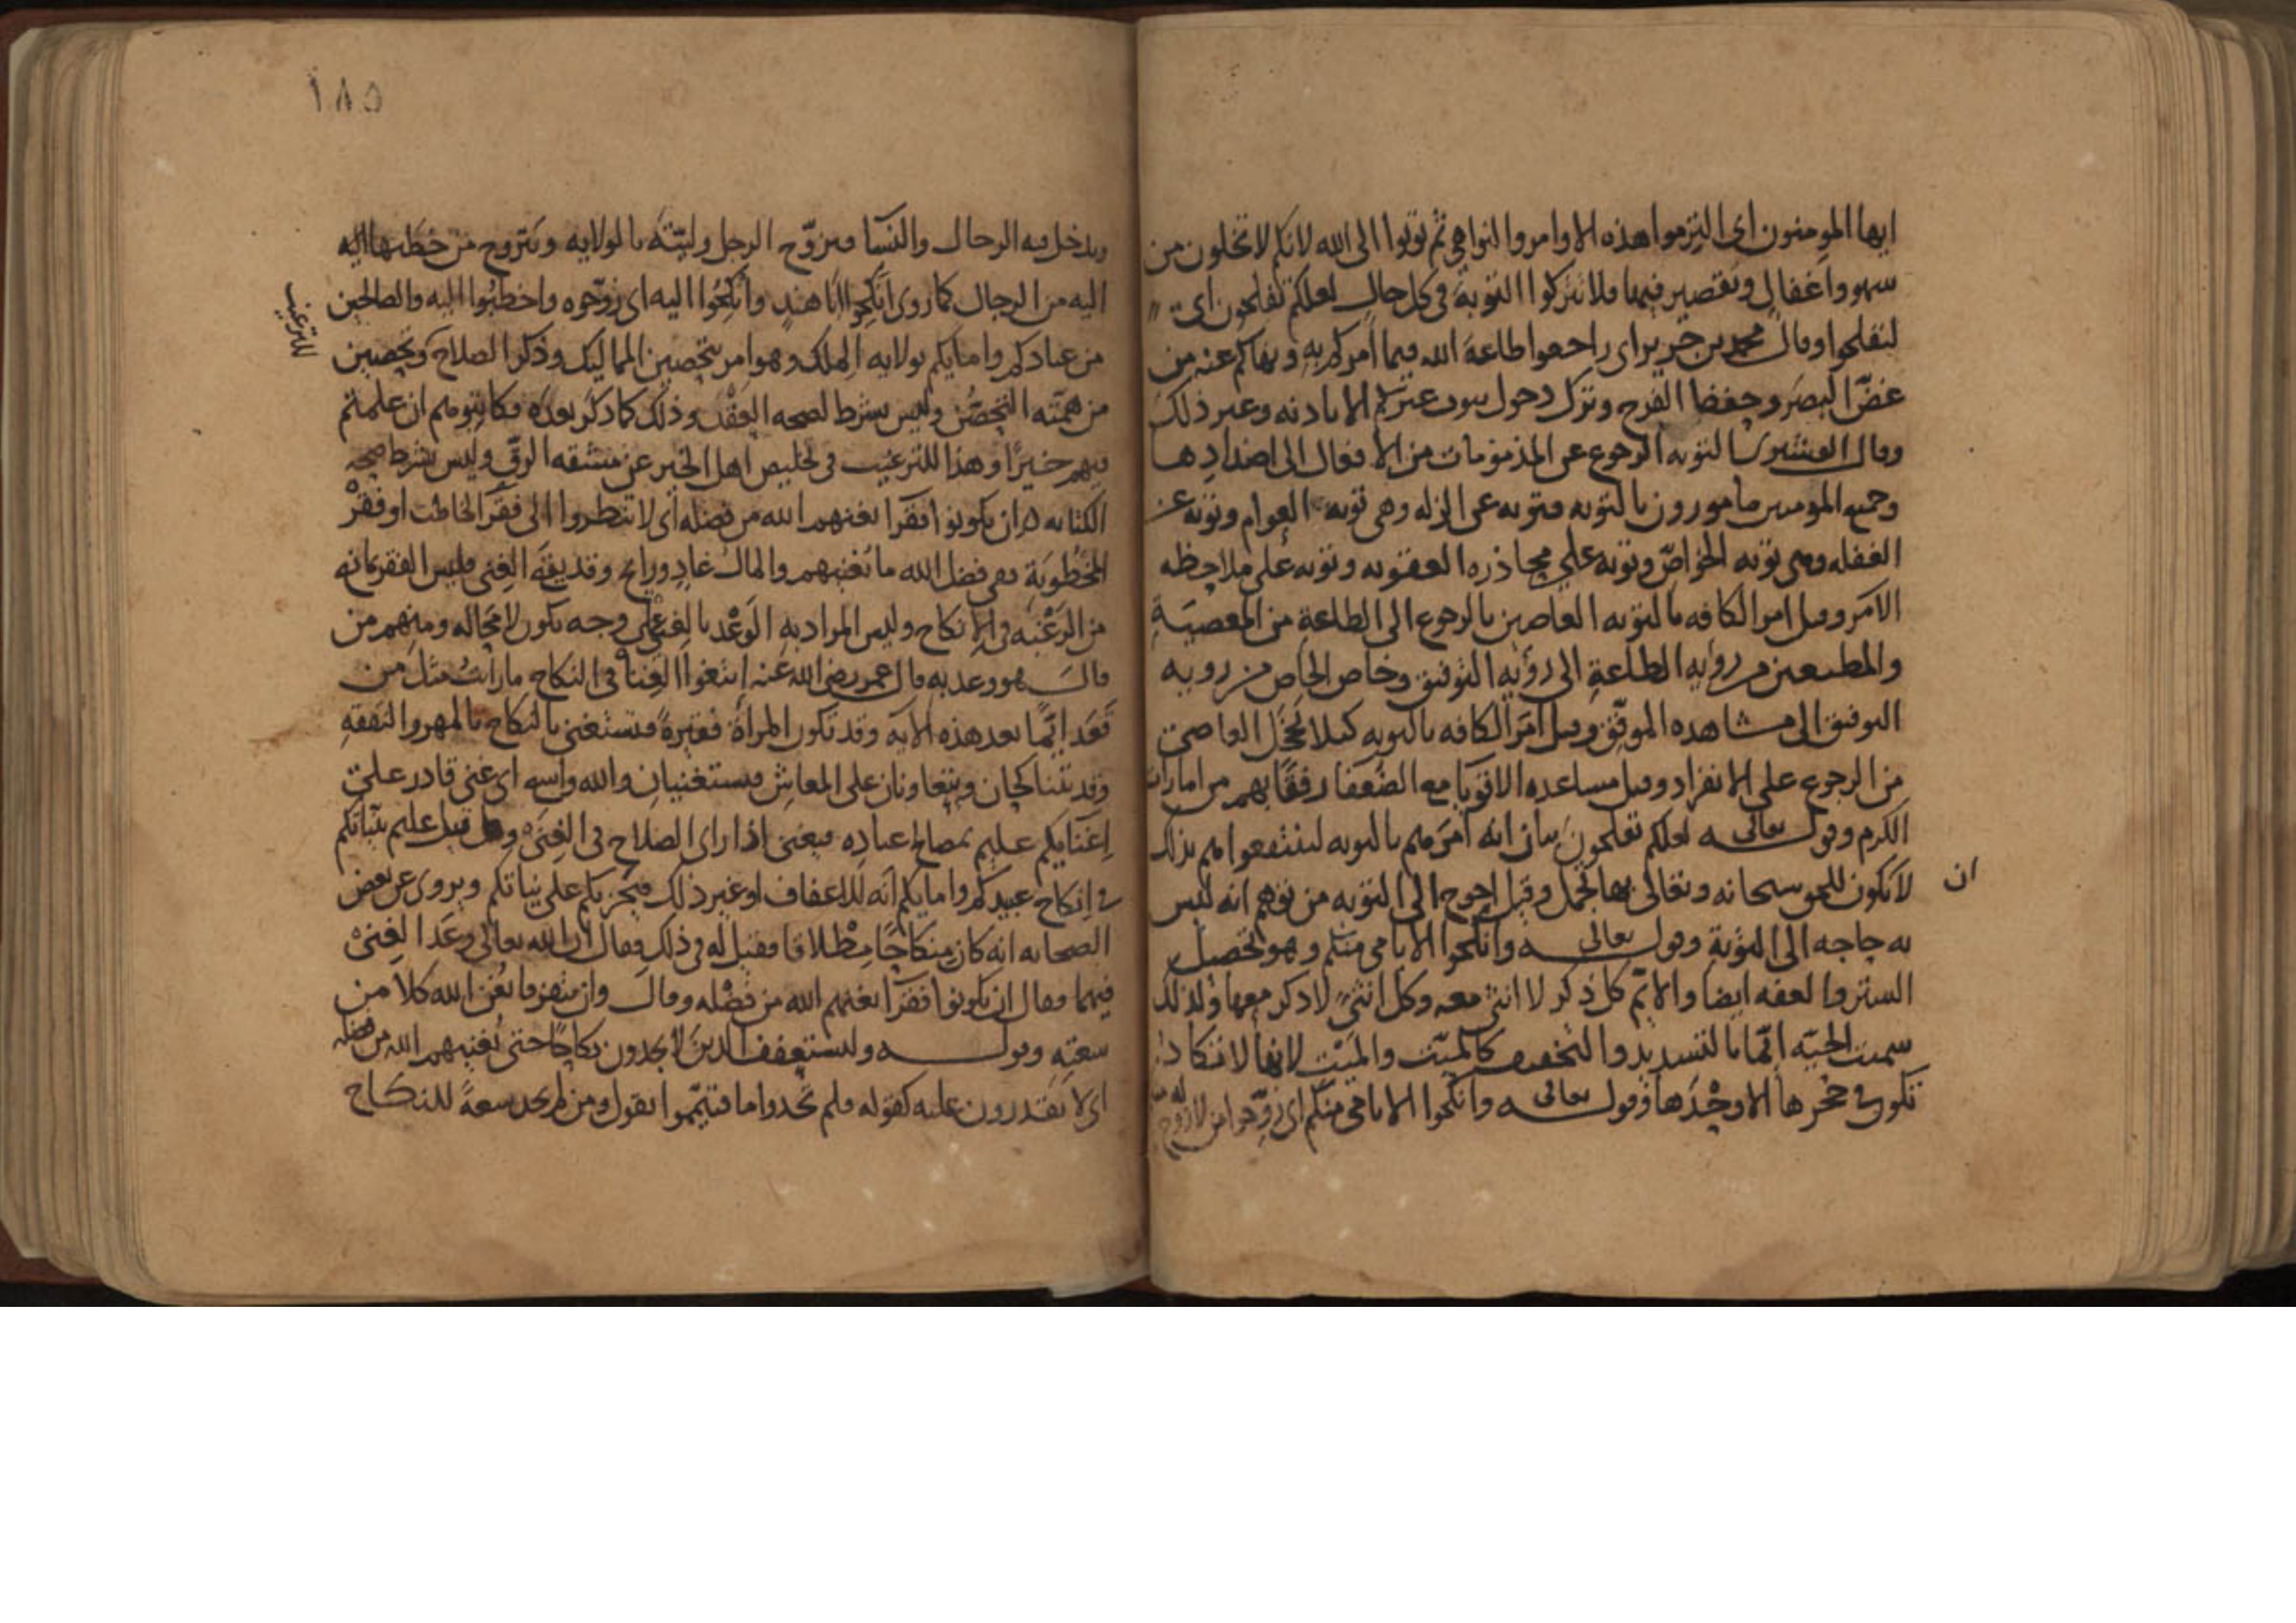 ايها المومنون اى التزموا هذه الاوامر والنواهى ثم توبوا الى الله لانكم لا تخلون من
سهو واغفال وتقصير فيها فلا تتركوا التوبة فى كل حال لعلكم تفلحون اى
لتفلحوا وقال محمد بن جرير اى راجعوا طاعة الله فيما امركم به ونهاكم عنه من
غض البصر وحفظ الفرج وترك دخول بيوت غيركم الا باذنه وغير ذلك
وقال القشيرى التوبه الرجوع عن المذمومات من الافعال الى اضدادها
وجميع المومنين مامورون بالتوبه فتوبه عن الزله وهى توبه العوام وتوبه عن
الغفله وهى توبه الخواص وتوبه على محاذره العقوبه وتوبه على ملاحظه
الامر وقيل امر الكافه بالتوبه العاصين بالرجوع الى الطاعة من المعصية
والمطيعين من رؤيه الطاعة الى رؤيه التوفيق وخاص الخاص من رويه
التوفيق الى مشاهده الموفق وقيل امر الكافه بالتوبه كيلا يخجل العاصى
من الرجوع على الانفراد وقيل مساعده الاقويا مع الضعفا رفقا بهم من امارات
الكرم وقوله تعالى لعلكم تفلحون بيان انه امرهم بالتوبه لينتفعوا هم بذلك
لا يكون للحق سبحانه وتعالى بها تجمل وقيل احوج الى التوبه من توهم انه ليس
ان
به حاجه الى التوبة وقوله تعالى وانكحوا الايامى منكم وهو تحصيل
الستر والعفه ايضا والايم كل ذكر لا انثى معه وكل انثى لا ذكر معها ولذلك
سميت الحيه ايما بالتشديد والتخفيف كالميت والميت لانها لا تكاد
تكون فى جحرها الا وحدها وقوله تعالى وانكحوا الايامى منكم اى زوجوا من لا زوج له
١٨٥
ويدخل فيه الرجال والنسا فيزوج الرجل وليته بالولايه ويتزوج من خطبها اليه
اليه من الرجال كما روى انكحوا ابا هند وانكحوا اليه اى زوجوه واخطبوا اليه والصالحين
للترغيب
من عبادكم وامايكم بولايه الملك وهو امر بتحصين المماليك وذكر الصلاح وتحصين
من همته التحصن وليس بشرط لصحه العقد وذلك كما ذكر بعده فكاتبوهم ان علمتم
فيهم خيرا وهذا للترغيب فى تخليص اهل الخير عن مشقه الرق وليس بشرط صحه
الكتابه ان يكونوا فقرا يغنهم الله من فضله اى لا تنظروا الى فقر الخاطب او فقر
المخطوبة ففى فضل الله ما يغنيهم والمال غاد ورايح وقد يقع الغنى فليس الفقر مانه
من الرغبه فى الانكاح وليس المراد به الوعد بالغنى على وجه يكون لا محاله ومنهم من
قال هو وعد به قال عمر رضى الله عنه ابتغوا الغنا فى النكاح ما رايت مثل من
قعد ايما بعد هذه الايه وقد تكون المراة فقيرة فتستغنى بالنكاح بالمهر والنفقه
وقد يتناكحان ويتعاونان على المعاش فيستغنيان والله واسع اى غنى قادر على
اغنايكم عليم بمصالح عباده فيغنى اذا راى الصلاح فى الغنى وقيل عليم بنياتكم
فى انكاح عبيدكم وامايكم انه للاعفاف او غير ذلك فيجزيكم على نياتكم ويروى عن بعض
الصحابه انه كان منكاحا مطلاقا فقيل له فى ذلك فقال ان الله تعالى وعد الغنى
فيهما فقال ان يكونوا فقرا يغنهم الله من فضله وقال وان يتفرقا يغن الله كلا من
سعته وقوله وليستعفف الذين لا يجدون نكاحا حتى يغنيهم الله من فضله
اى لا يقتدرون عليه كقوله فلم تجدوا ما فتيمموا يقول ومن لم يجد سعة للنكاح